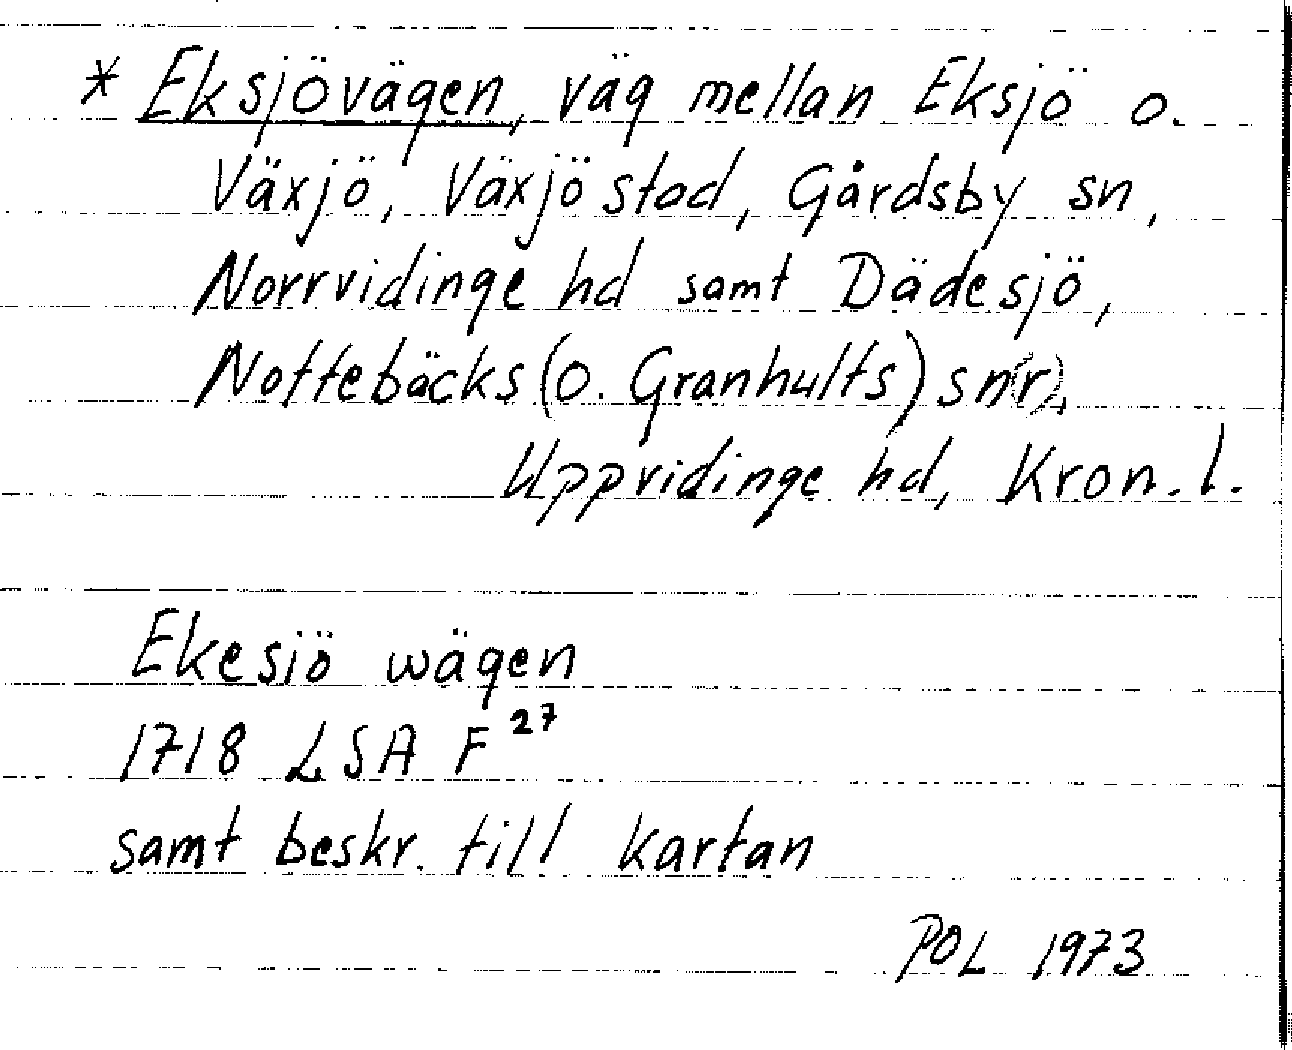 * Eksjövägen, väg mellan Eksjö o.
Växjö, Växjö stad, Gårdsby sn,
Norrvidinge hd samt Dädesjö,
Nottebäcks (o. Granhults) sn(r),
Uppvidinge hd, Kron. l.
Ekesiö wägen
1718 LSA F 27
samt beskr. till kartan
POL 1973